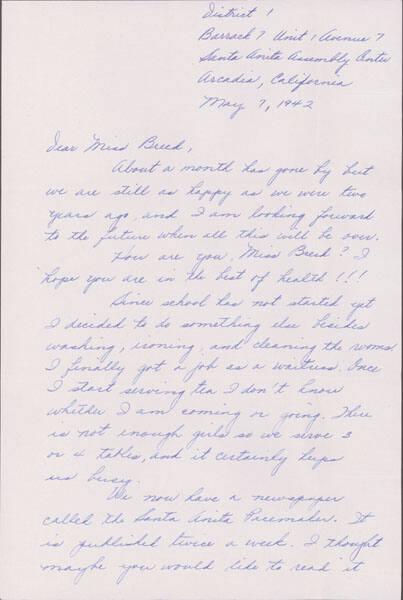 District 1
Barrack 7 Unit 1 Avenue 7
Santa Anita Assembly Center
Arcadia, California
May 7, 1942
Dear Miss Breed,
About a month has gone by but
we are still as happy as we were two
years ago, and I am looking forward
to the future when all this will be over.
How are you, Miss Breed? I
hope you are in the best of health!!!
Since school has not started yet
I decided to do something else besides
washing, ironing, and cleaning the rooms.
I finally got a job as a waitress. Once
I start serving tea I don't know
whether I am coming or going. There
is not enough girls so we serve 3
or 4 tables, and it certainly keeps
us busy.
We now have a newspaper
called the Santa Anita Pacemaker. It
is published twice a week. I thought
maybe you would like to read it